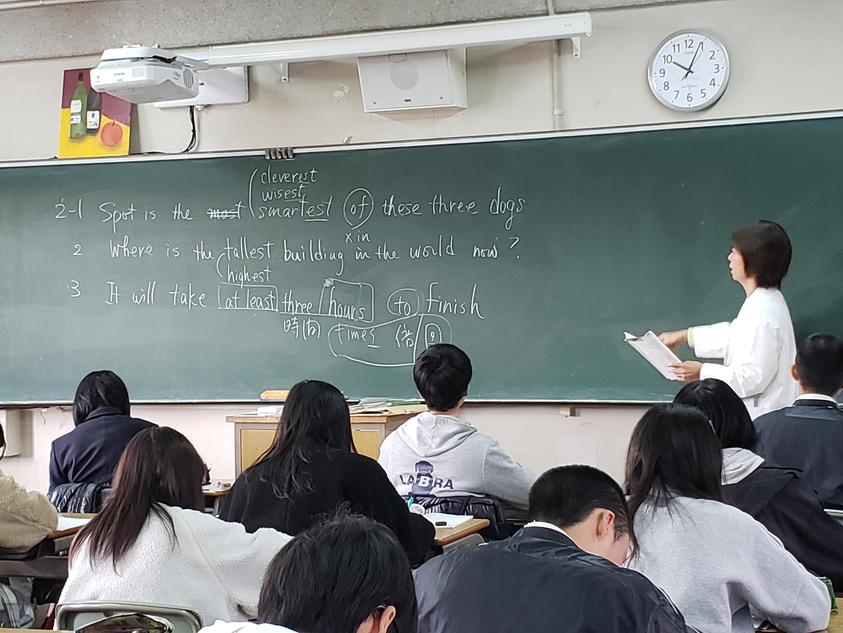 cleverest
wisest
2-1 Spot is the most smartest of these three dogs
x in
2 Where is the tallest building in the world now?
highest
3 It will take at least three hours to finish
時間
times
12
1
2
3
4
5
6
7
8
9
10
11
EPSON
LABRA